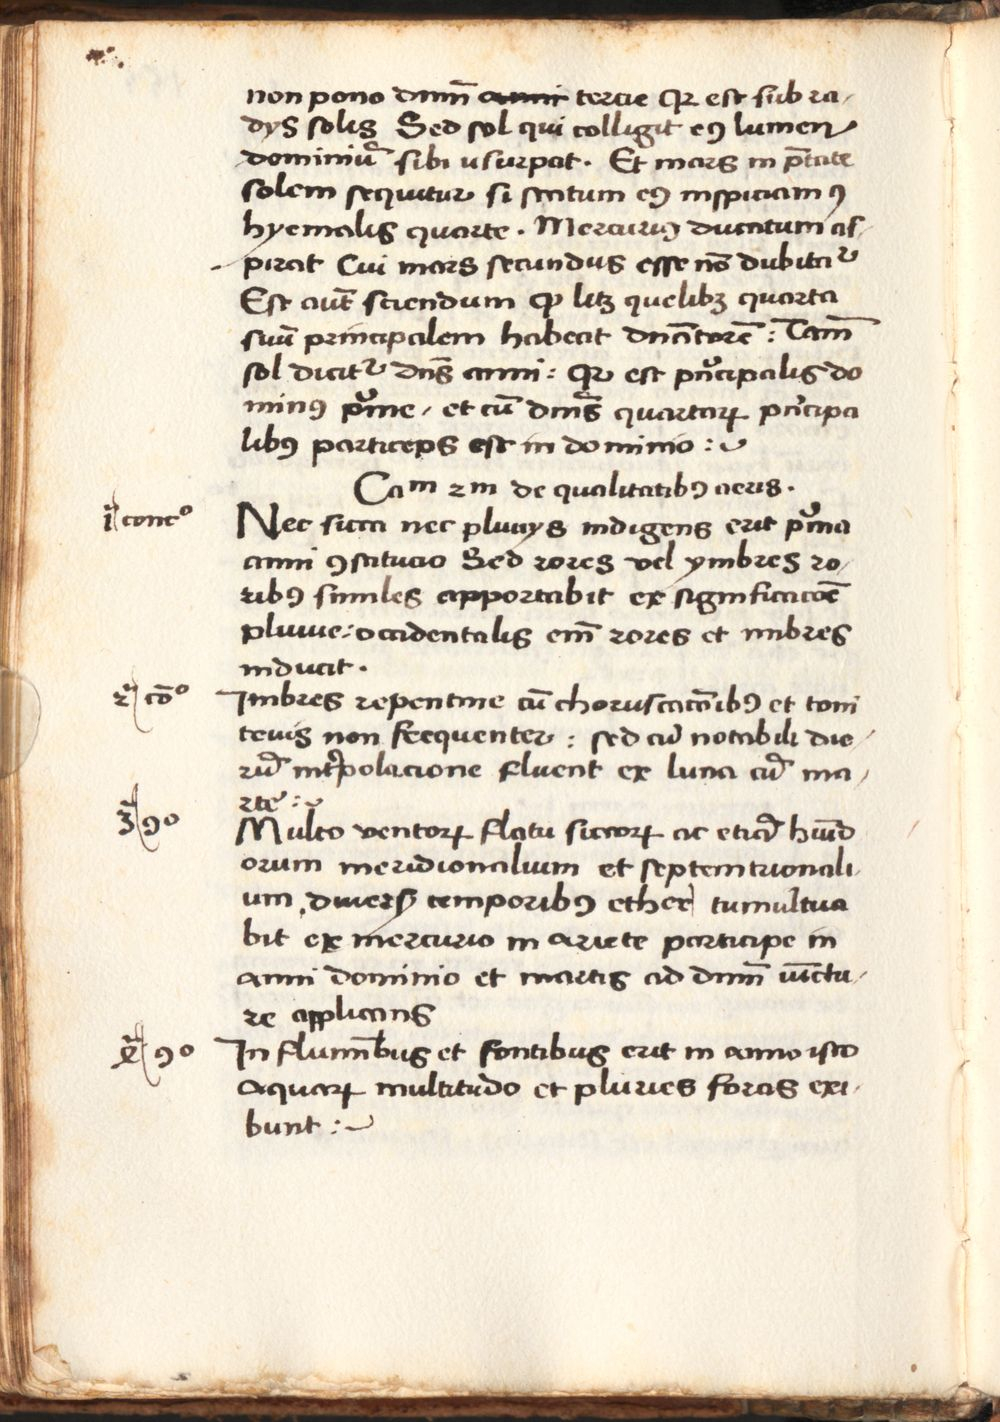 non pono dnm̄ a̶n̶n̶i̶ tercie Qꝛ est sub ra⸗
dys solis Sed sol qui colligit eꝯ lumen
dominiū sibi usurpat. Et mars in p̄tate
solem sequitur si statum eꝯ inspiciamꝯ
hyemalis quarte. Mercuriꝯ ducatum as⸗
pirat Cui mars secundus esse nō dubitaᷣ
Est aut̄ sciendum ꝙ litꝫ quelibꝫ quarta
suū principalem habeat dnāntorē : Tam̄
sol dicitᷣ dn̄s anni : Qꝛ est pͥncipalis do
minꝯ pͥme, et cū dnīs quartaꝝ pͥncipa
libꝯ particeps est in dominio :
Cam 2m de qualitatibꝯ aeris.
1ª concᵒ Nec sicca nec pluuys indigens erit pͥma
anni ꝯstitucio Sed rores vel ymbres ro⸗
ribꝯ similes apportabit ex significacōe
pluuie: occidentalis em̄ rores et imbres
inducit.
2ª cōᵒ Imbres repentine cū choruscacōibꝯ et toni
teuis non frequenter : sed cū notabili die⸗
rū intꝰpolacione fluent ex luna cū ma⸗
rte :
3ª ꝯᵒ Multo ventoꝝ flatu siccoꝝ ac etiā humid
orum meridionalium et septemtrionali⸗
um diuersꝭ temporibꝯ ether tumultua
bit ex mercurio in ariete participe in
anni dominio et martis ad dnm̄ iūctu⸗
re applicans
4ª ꝯᵒ In fluminībus et fontibus erit in anno isto
aquaꝝ multitudo et pluries foras exi⸗
bunt :